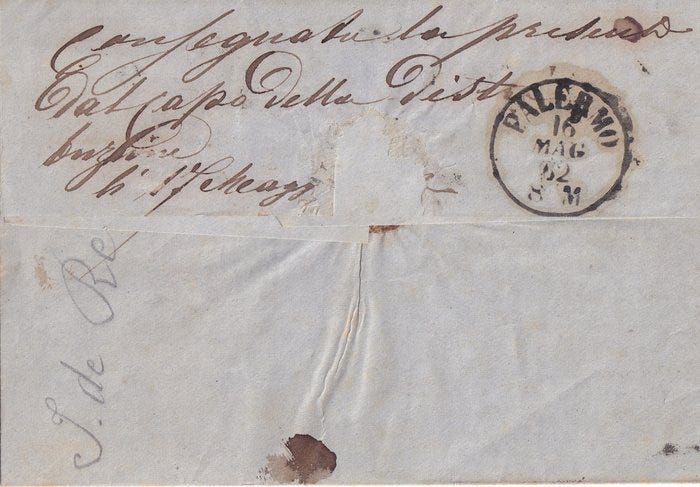 Consegnata la presente
dal capo della Distri
buzione
li 17 Magg
PALERMO
16
MAG
62
8 M
J. de Re